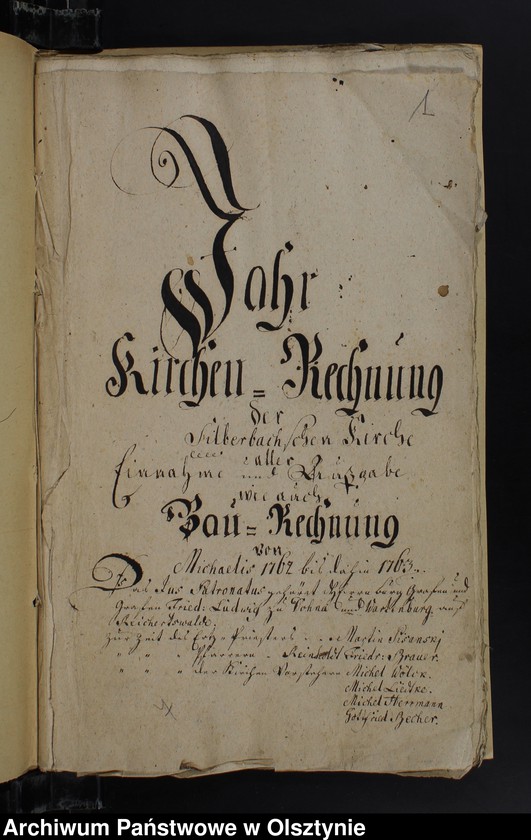 1
Jahr
Kirchen = Rechnung
der
Silberbachschen Kirche
aller
Einnahme und Ausgabe
wie auch
Bau = Rechnung
von
Michaelis 1762 bis dahin 1763.
Das Jus Patronatus gehöret Herrn Burg Grafen und
Grafen Fried: Ludwig zu Dohna und Wartenburg auf
Reichertswalde.
Zur Zeit des Ertz-Priesters Martin Pisanski
" " " Pfarrern - Reinhold Friedr: Brauer.
" " " der Kirchen Vorstehern Michel Wolck.
Michel Liedtke.
Michel Herrmann
Gottfried Becher.
Archiwum Państwowe w Olsztynie